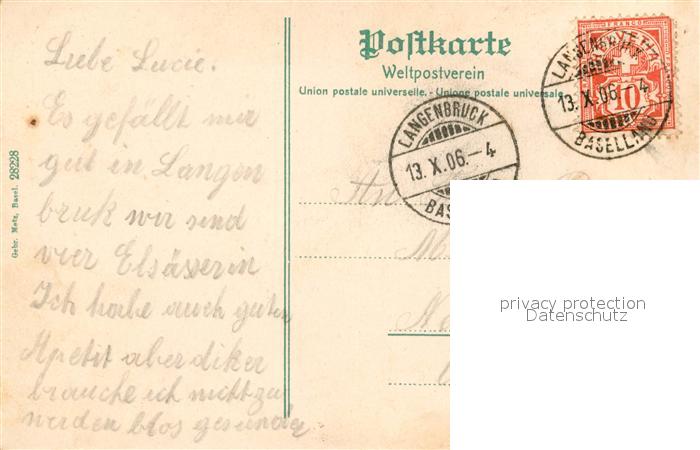 Liebe Lucie.
Es gefällt mir
gut in Langen
bruk wir sind
vier Elsässerin
Ich habe auch guten
Apetit aber diker
brauche ich nicht zu
werden blos gesünder
Gebr. Metz, Basel. 28228
Postkarte
Weltpostverein
Union postale universelle. - Unione postale universale
LANGENBRUCK
13. X. 06. - 4
BAS
LANGENBRUCK
13. X. 06. - 4
BASELLAND
10
FRANCO
privacy protection
Datenschutz